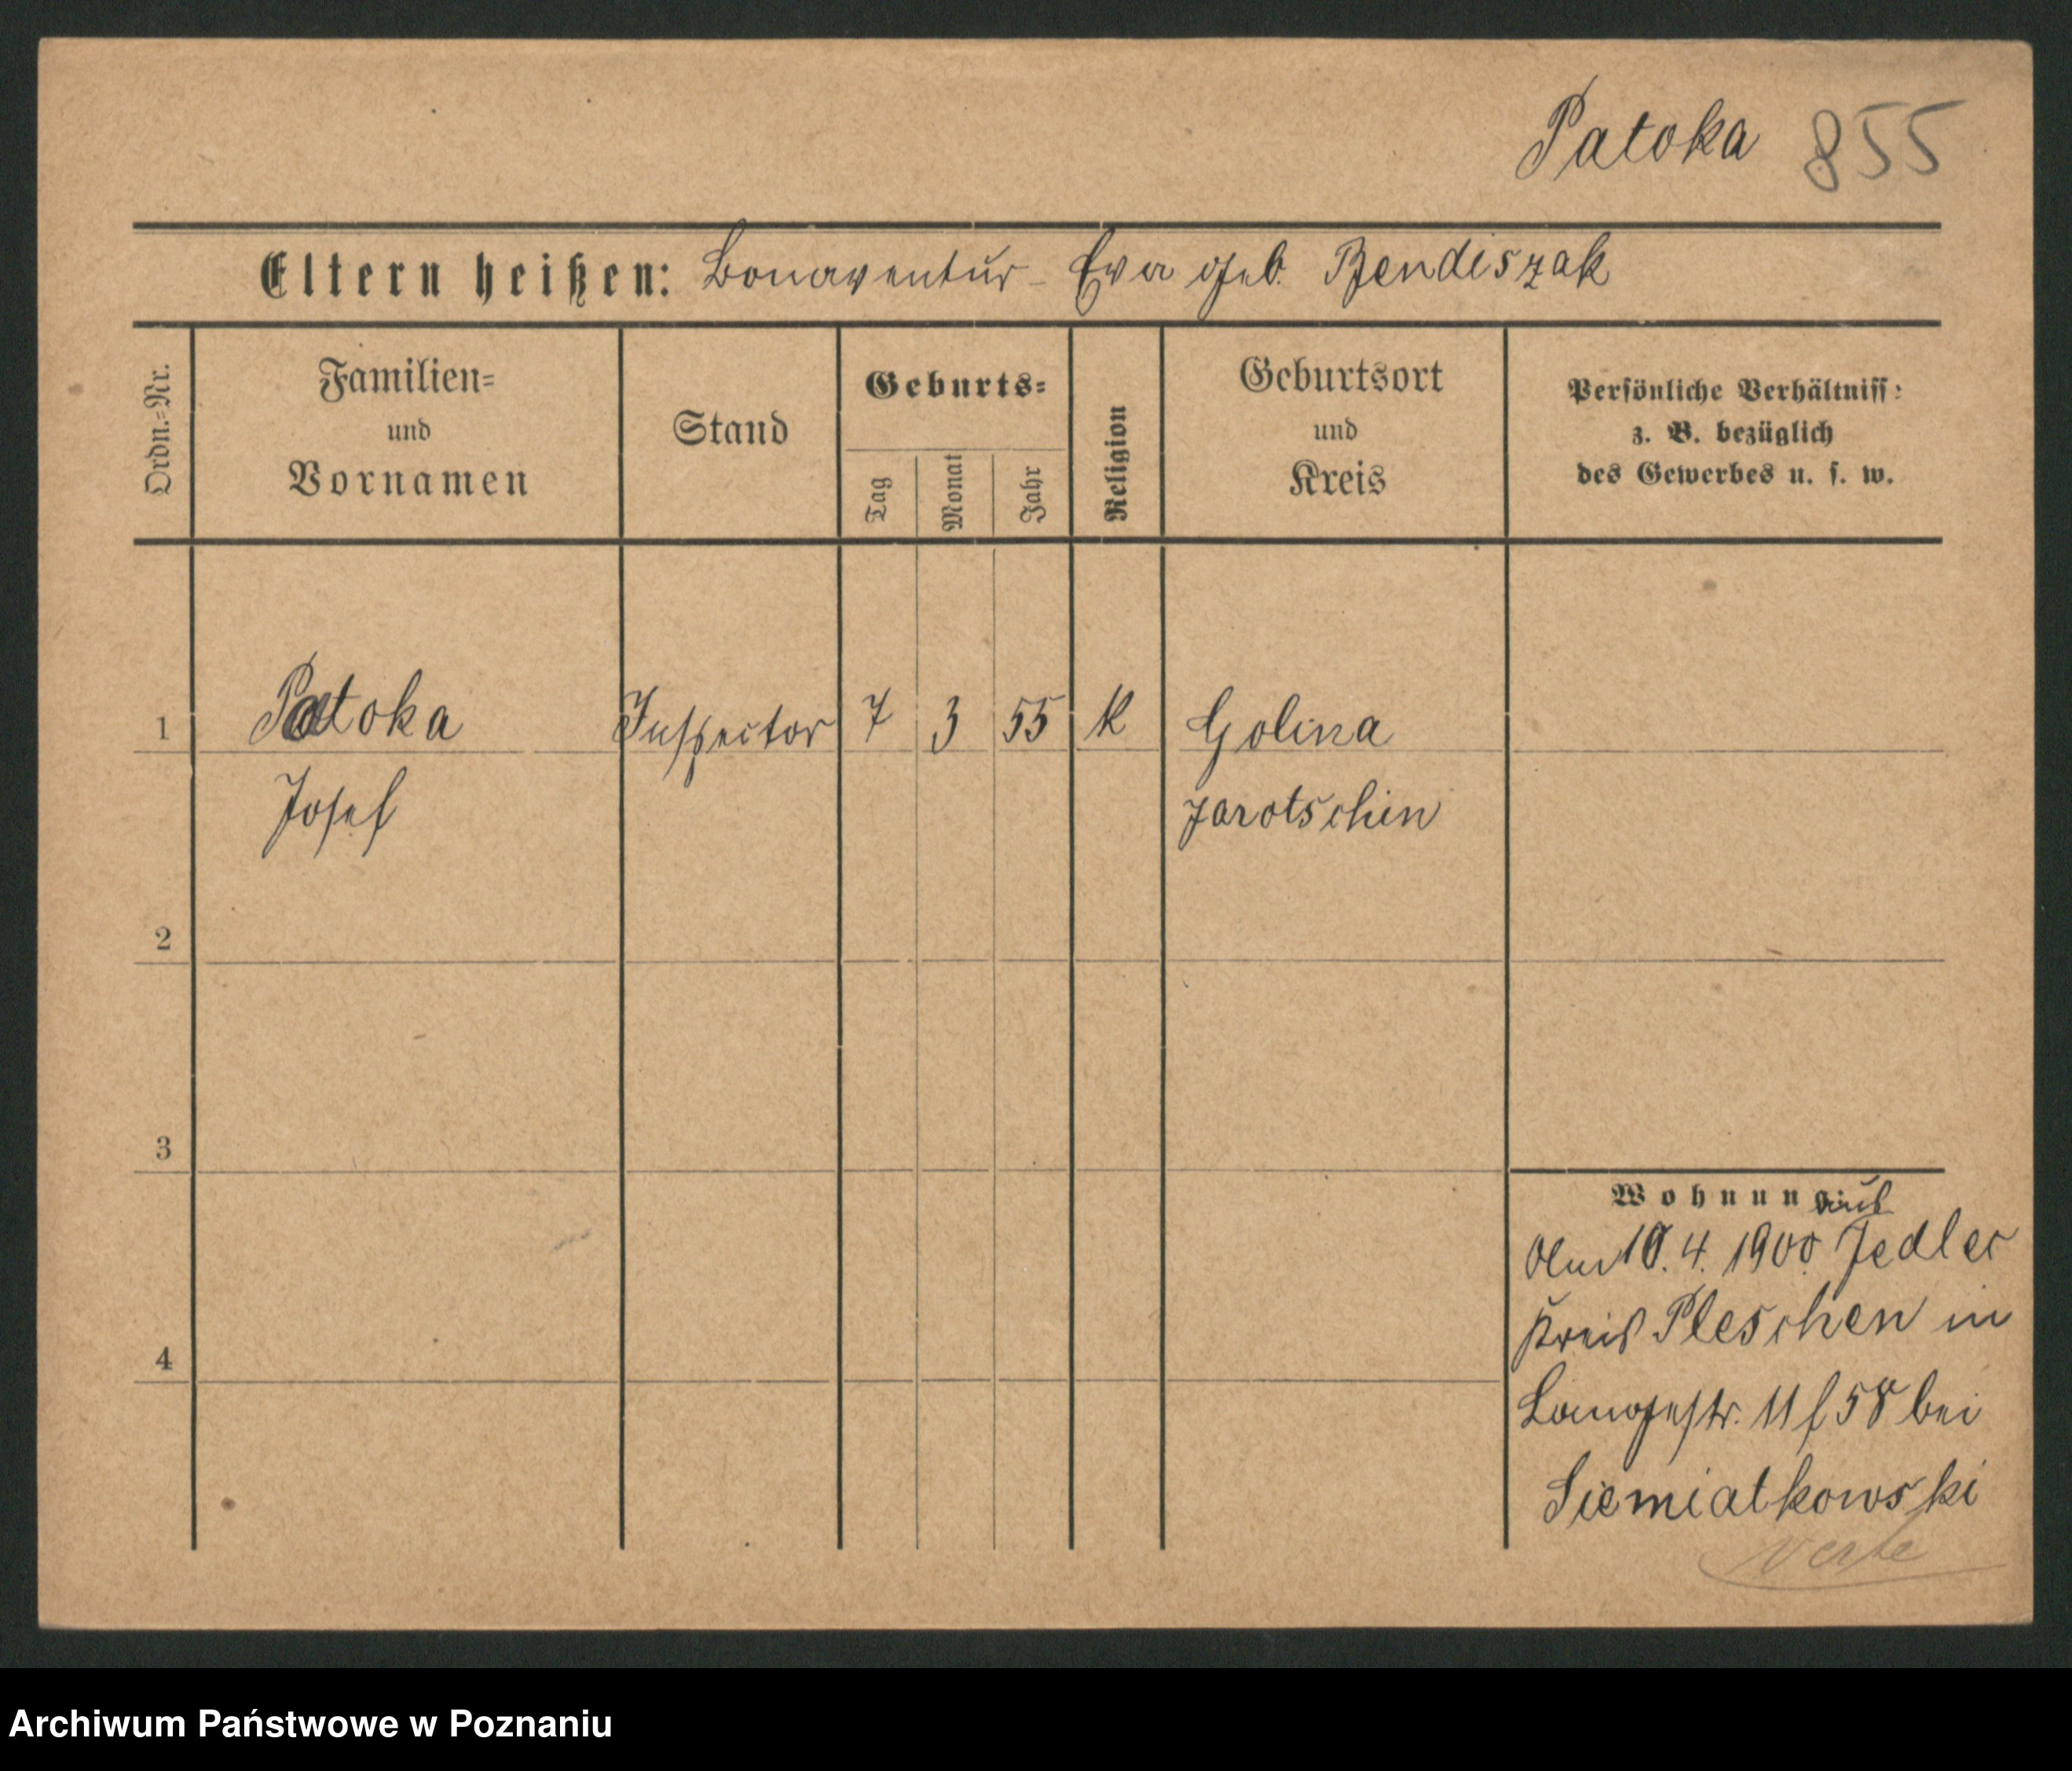 Patoka 855
Eltern heißen: Bonaventur - Eva geb. Bendiszak
Ordn.=Nr.
Familien=
und
Vornamen
Stand
Geburts=
Tag
Monat
Jahr
Religion
Geburtsort
und
Kreis
Persönliche Verhältniss:
z. B. bezüglich
des Gewerbes u. s. w.
1 Patoka Inspector 7 3 55 k Golina
Josef Jarotschin
2
3
4
Wohnung: aus
Am 10. 4. 1900 Jedlec
Kreis Pleschen in
Langestr. 11 f 58 bei
Siemiatkowski
verte
Archiwum Państwowe w Poznaniu